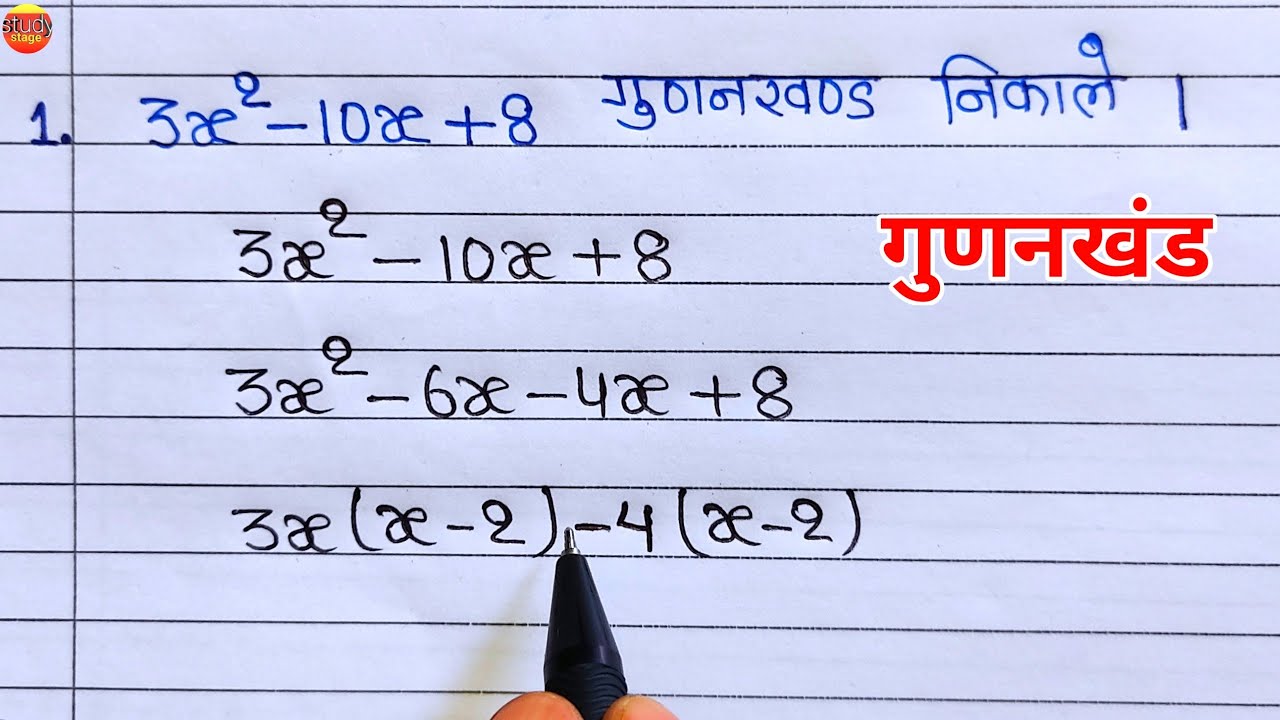 study
stage
1. 3x² - 10x + 8 गुणनखण्ड निकाले ।
3x² - 10x + 8
गुणनखंड
3x² - 6x - 4x + 8
3x(x - 2) - 4(x - 2)